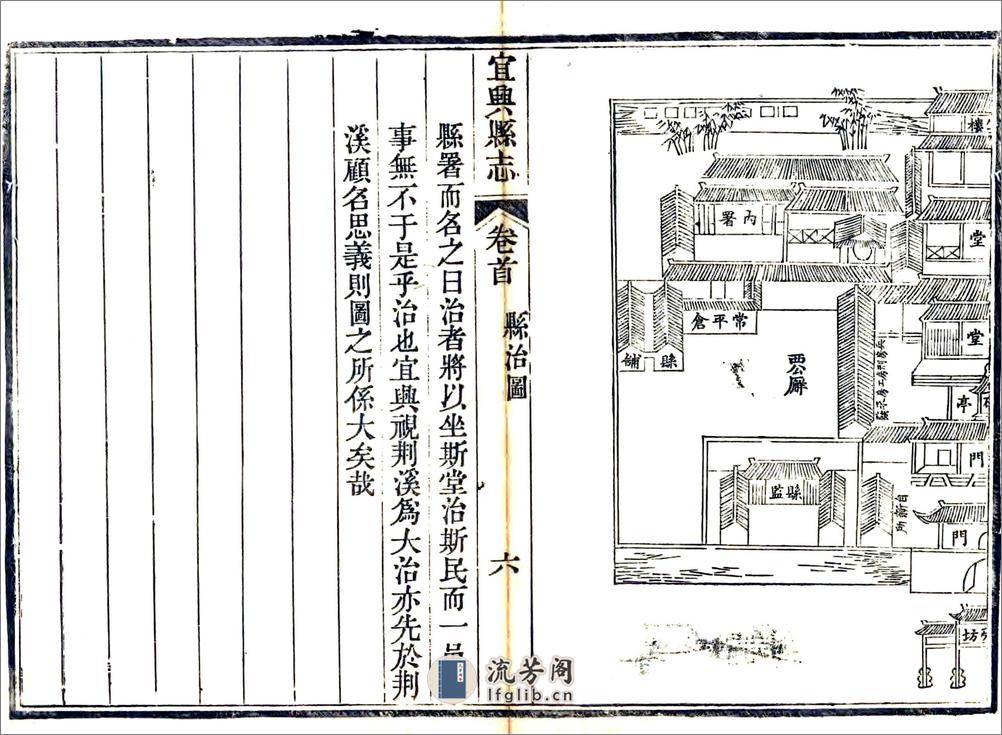 樓
堂
內署
堂
常平倉
縣舖
西公廨
兵房刑房工房承發
亭
門
縣監
自新所
門
坊
宜興縣志
卷首
縣治圖
六
縣署而名之曰治者將以坐斯堂治斯民而一邑
事無不于是乎治也宜興視荆溪爲大治亦先於荆
溪顧名思義則圖之所係大矣哉
流芳阁
lfglib.cn